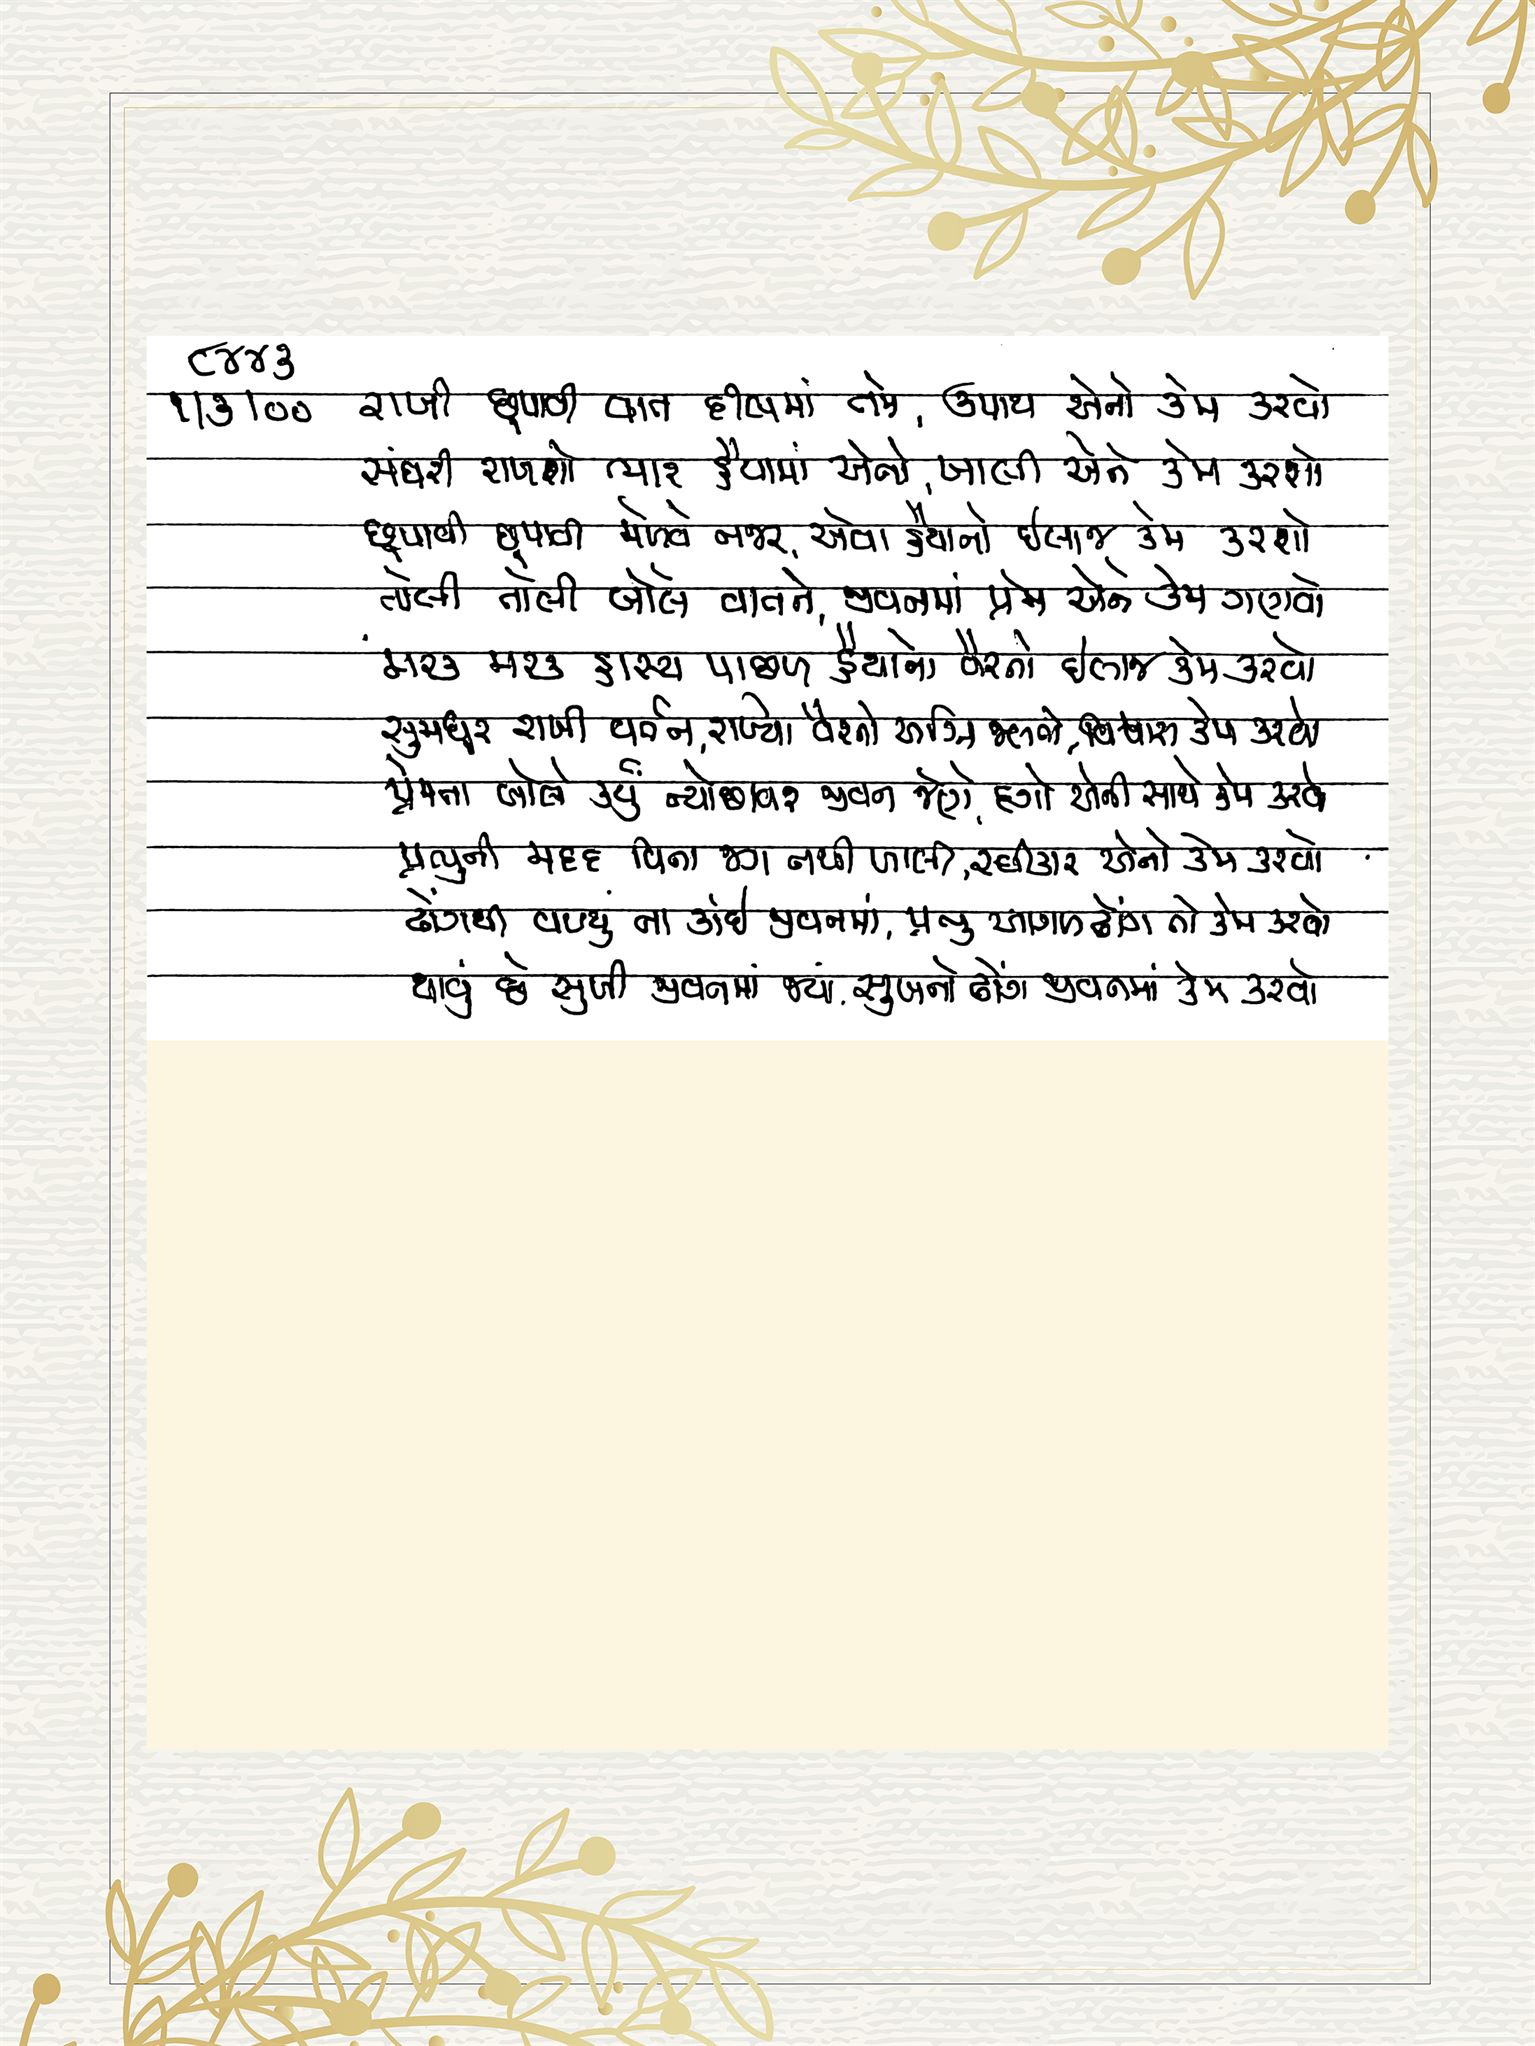 ૮૪૪૩
૧/૩/૦૦ રાખી છૂપાવી વાત દીલમાં તમે, ઉપાય એનો કેમ કરવો
સંઘરી રાખશો ભાર હૈયામાં એનો, ખાલી એને કેમ કરશો
છૂપાવી છૂપાવી મેળવે નજર, એવા હૈયાનો ઇલાજ કેમ કરશો
તોલી તોલી બોલે વાતને, જીવનમાં પ્રેમ એને કેમ ગણવો
મરક મરક હાસ્ય પાછળ હૈયાના વૈરનો ઇલાજ કેમ કરવો
સુમધુર રાખી વર્તન, રાખ્યો વૈરનો અગ્નિ જલતો, વિશ્વાસ કેમ કરવો
પ્રેમના બોલે કર્યું ન્યોછાવર જીવન જેણે, દગો એની સાથે કેમ કરવો
પ્રભુની મદદ વિના જગ નથી ખાલી, સ્વીકાર એનો કેમ કરવો
ઢોંગથી વળ્યું ના કાંઈ જીવનમાં, પ્રભુ આગળ ઢોંગ તો કેમ કરવો
થાવું છે સુખી જીવનમાં જ્યાં, સુખનો ઢોંગ જીવનમાં કેમ કરવો